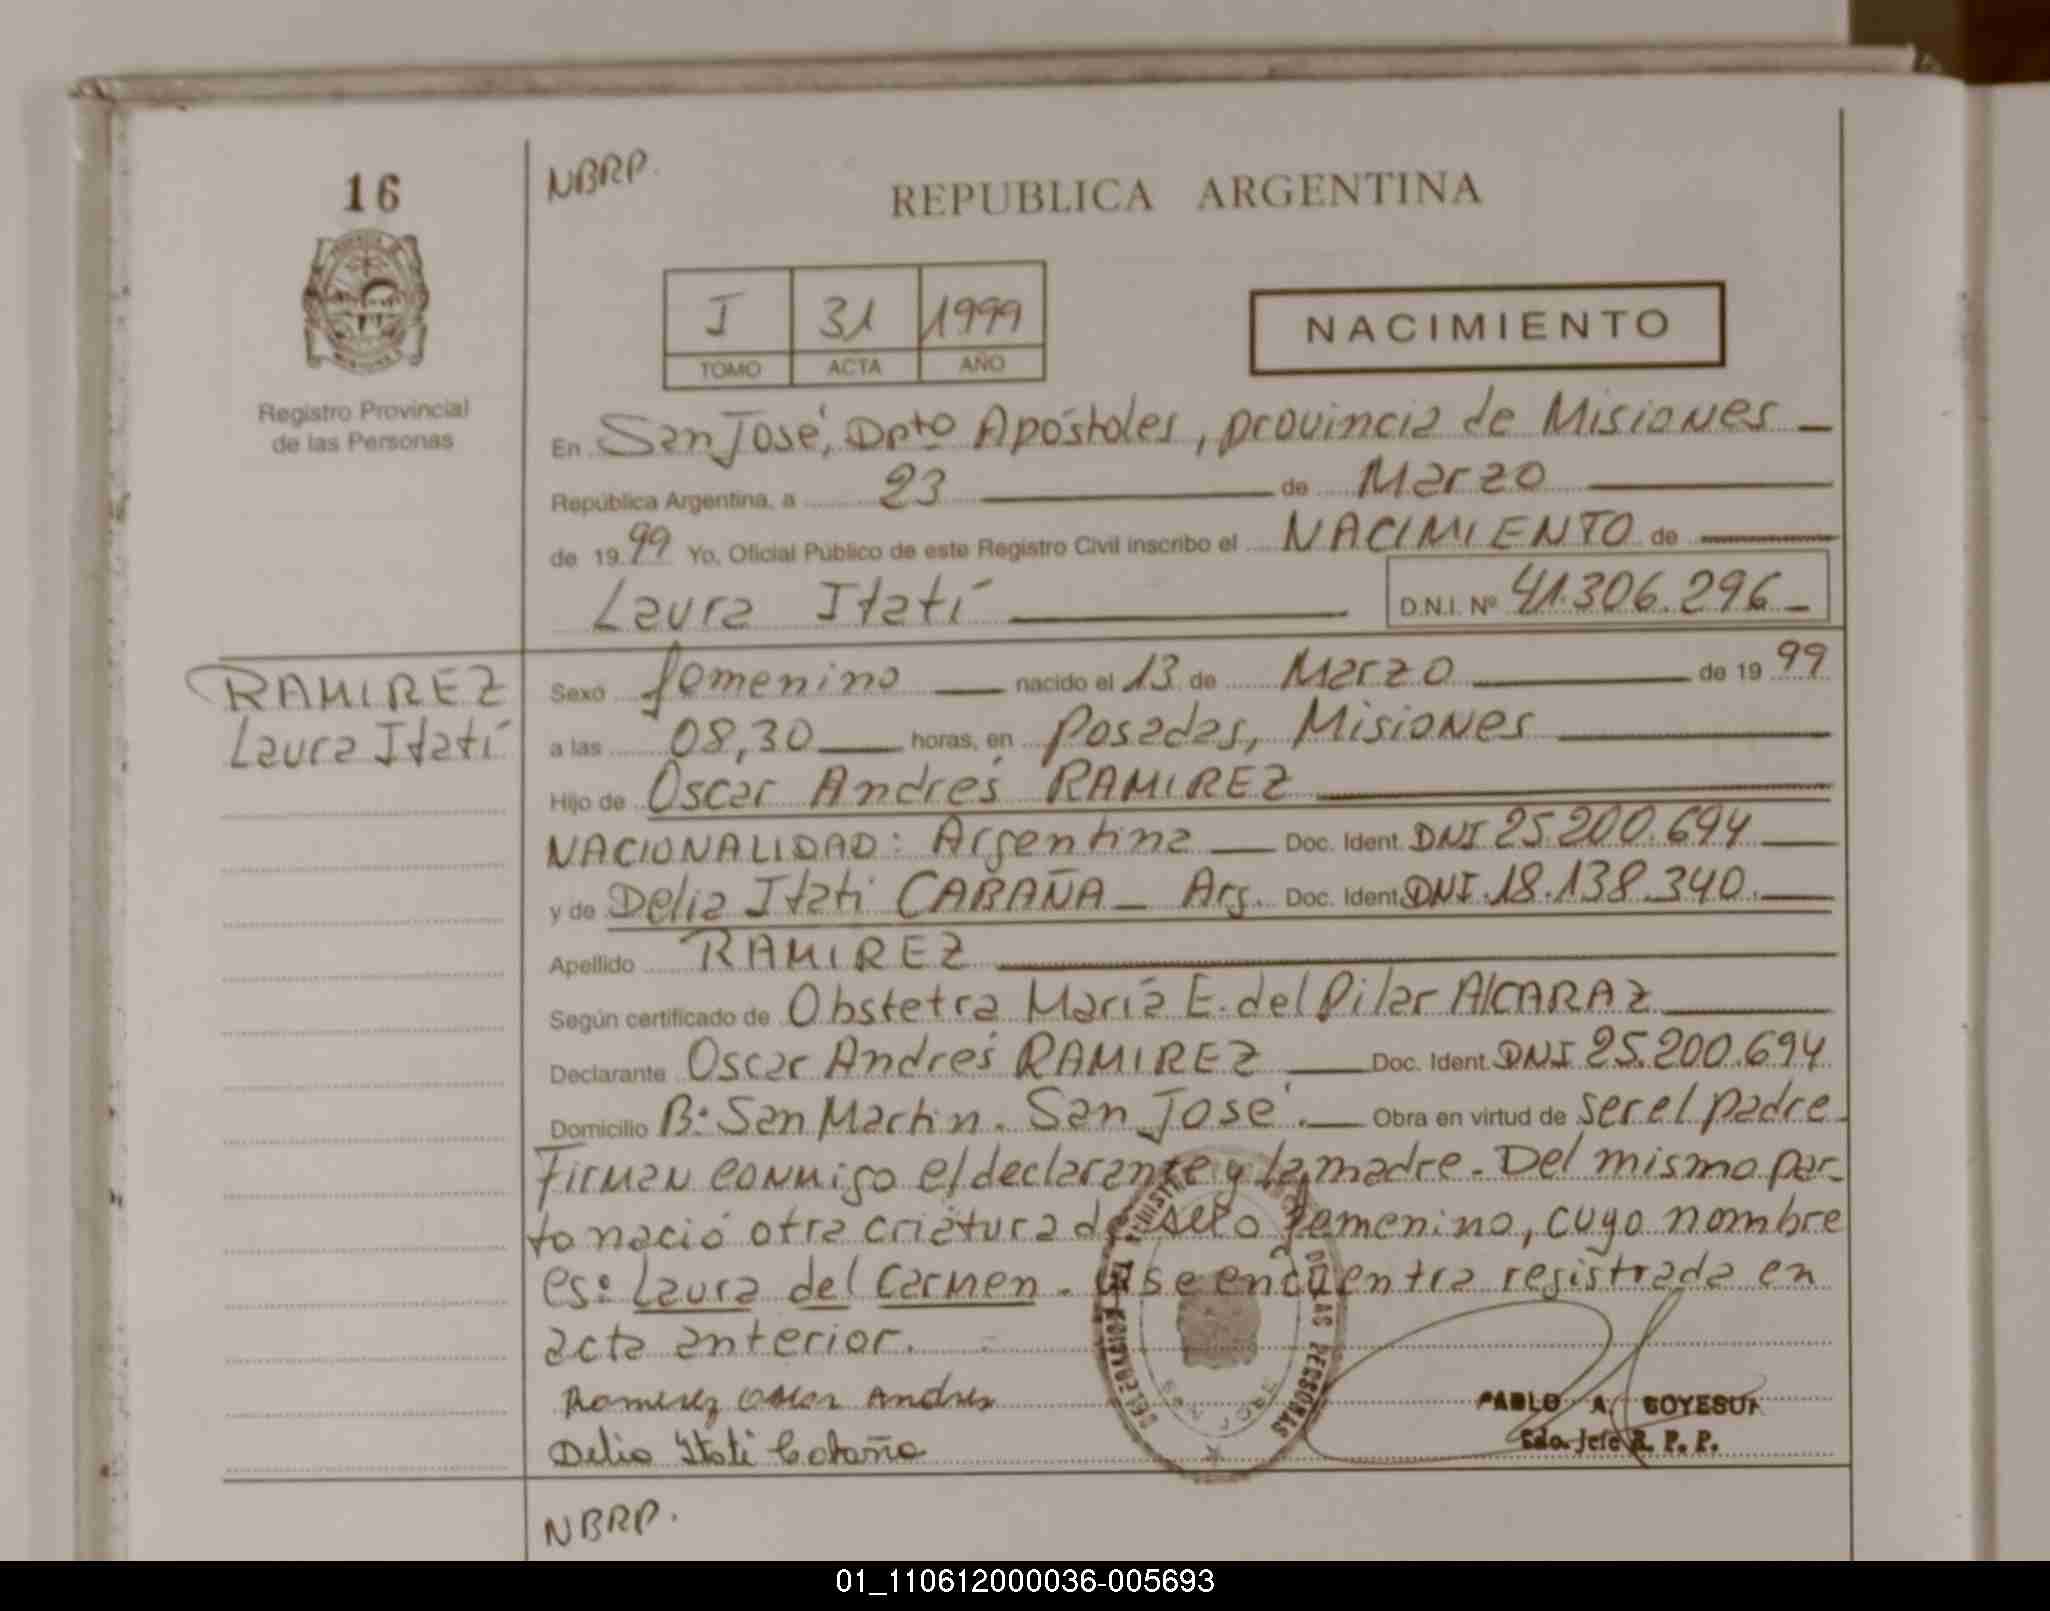 16
NBRP.
REPUBLICA ARGENTINA
I 31 1999
TOMO ACTA AÑO
NACIMIENTO
Registro Provincial
de las Personas
En San José, Dpto Apóstoles, provincia de Misiones
República Argentina, a 23 de Marzo
de 1999 Yo, Oficial Público de este Registro Civil inscribo el NACIMIENTO de
Laura Itatí D.N.I. Nº 41.306.296
RAMIREZ
Laura Itatí
Sexo femenino nacido el 13 de Marzo de 1999
a las 08,30 horas, en Posadas, Misiones
Hijo de Oscar Andrés RAMIREZ
NACIONALIDAD: Argentina Doc. Ident. DNI 25.200.694
y de Delia Itati CABAÑA Arg. Doc. Ident. DNI.18.138.340.
Apellido RAMIREZ
Según certificado de Obstetra María E. del Pilar AlCARAZ
Declarante Oscar Andrés RAMIREZ Doc. Ident. DNI 25.200.694
Domicilio B: San Martin. San José. Obra en virtud de ser el padre
Firman conmigo el declarante y la madre. Del mismo par-
to nació otra criatura de sexo femenino, cuyo nombre
es: Laura del Carmen. y se encuentra registrada en
acta anterior.
Ramirez Oscar Andres
Delia Itati Cabaña
PABLO A.
Jefe R. P. P.
DE LAS PERSONAS
NBRP.
01_110612000036-005693